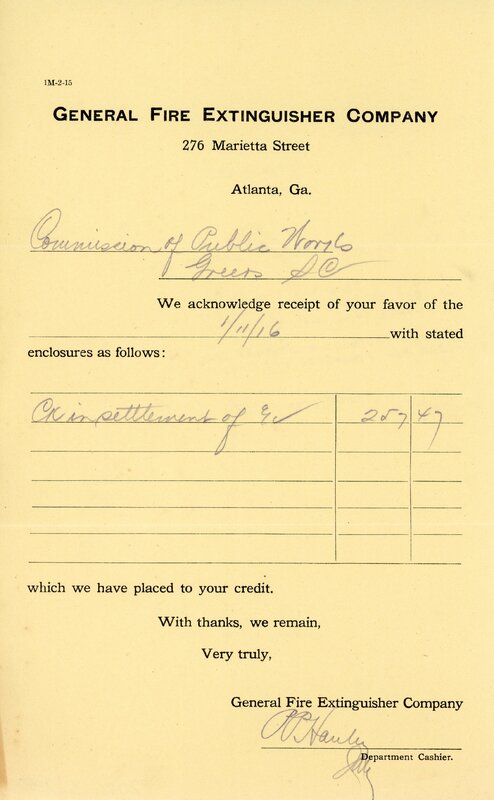 1M-2-15
GENERAL FIRE EXTINGUISHER COMPANY
276 Marietta Street
Atlanta, Ga.
Commission of Public Works
Greers SC
We acknowledge receipt of your favor of the
1/11/16 with stated
enclosures as follows:
Ck in settlement of 257 47
which we have placed to your credit.
With thanks, we remain,
Very truly,
General Fire Extinguisher Company
Department Cashier.